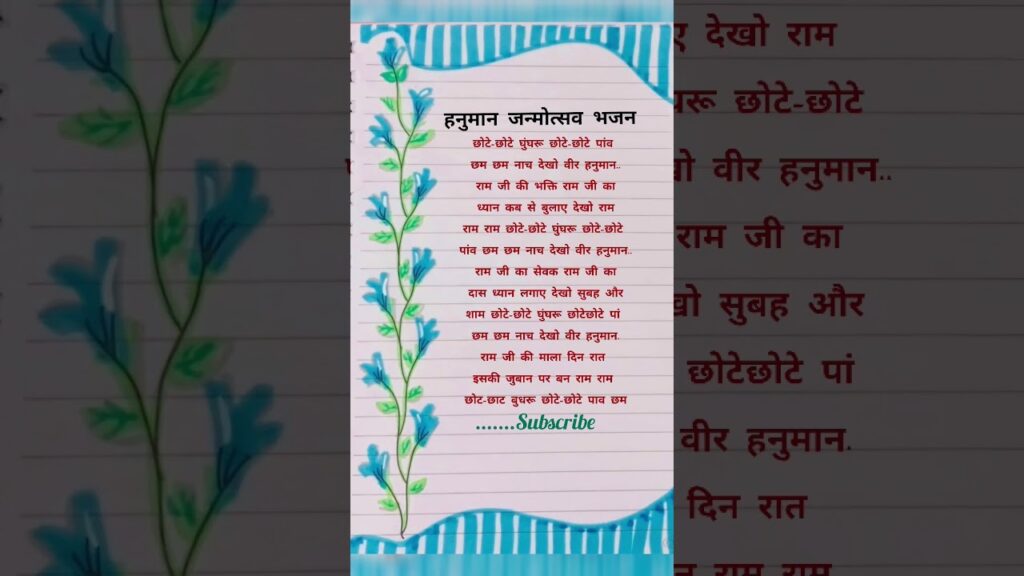 हनुमान जन्मोत्सव भजन
छोटे-छोटे घुंघरू छोटे-छोटे पांव
छम छम नाच देखो वीर हनुमान..
राम जी की भक्ति राम जी का
ध्यान कब से बुलाए देखो राम
राम राम छोटे-छोटे घुंघरू छोटे-छोटे
पांव छम छम नाच देखो वीर हनुमान..
राम जी का सेवक राम जी का
दास ध्यान लगाए देखो सुबह और
शाम छोटे-छोटे घुंघरू छोटेछोटे पां
छम छम नाच देखो वीर हनुमान.
राम जी की माला दिन रात
इसकी जुबान पर बन राम राम
छोट-छाट बुधरू छोटे-छोटे पाव छम
.......Subscribe
देखो राम
छोटे-छोटे
वीर हनुमान..
राम जी का
सुबह और
छोटेछोटे पां
वीर हनुमान.
दिन रात
राम राम